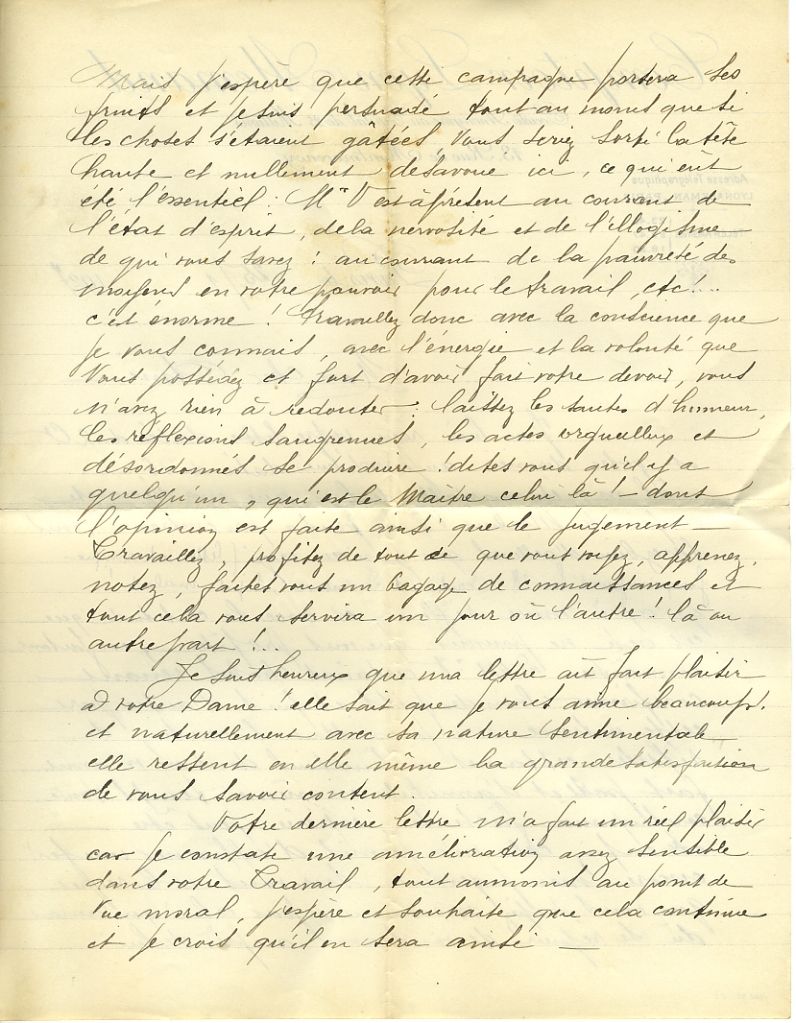 Mais j'espère que cette campagne portera ses
fruits et je suis persuadé tout au moins que si
les choses s'étaient gâtées, vous seriez sorti la tête
haute et nullement désavoué ici, ce qui eût
été l'essentiel: Mr V est à présent au courant de
l'état d'esprit, de la nervosité et de l'illogisme
de qui vous savez! au courant de la pauvreté des
moyens en votre pouvoir pour le travail, etc!...
c'est énorme! Travaillez donc avec la conscience que
je vous connais, avec l'énergie et la volonté que
vous possédez et fort d'avoir fait votre devoir, vous
n'avez rien à redouter: laissez les sautes d'humeur,
les réflexions saugrenues, les actes orgueilleux et
désordonnés se produire! dites vous qu'il y a
quelqu'un, qui est le Maître celui là! - dont
l'opinion est faite ainsi que le jugement -
Travaillez, profitez de tout ce que vous voyez, apprenez,
notez, faites vous un bagage de connaissances et
tout cela vous servira un jour où l'autre! là ou
autre part!..
Je suis heureux que ma lettre ait fait plaisir
à votre Dame! elle sait que je vous aime beaucoup.
et naturellement avec sa nature sentimentale
elle ressent en elle même la grande satisfaction
de vous savoir content.
Votre dernière lettre m'a fait un réel plaisir
car je constate une amélioration assez sensible
dans votre Travail, tout au moins au point de
vue moral, j'espère et souhaite que cela continue
et je crois qu'il en sera ainsi —